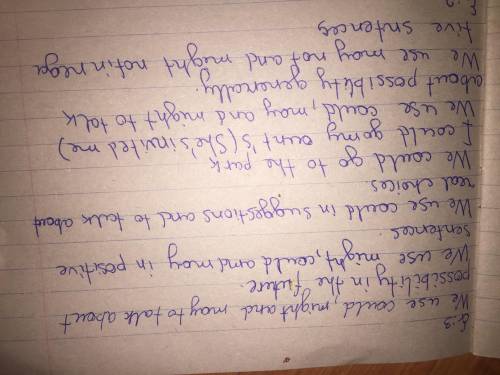 6.3
We use could, might and may to talk about
possibility in the future.
We use might, could and may in positive
sentences.
We use could in suggestions and to talk about
real choices.
We could go to the park
I could go my aunt's (She's invited me)
We use could, may and might to talk
about possiblity generally.
We use may not and might not in nega
tive sentences